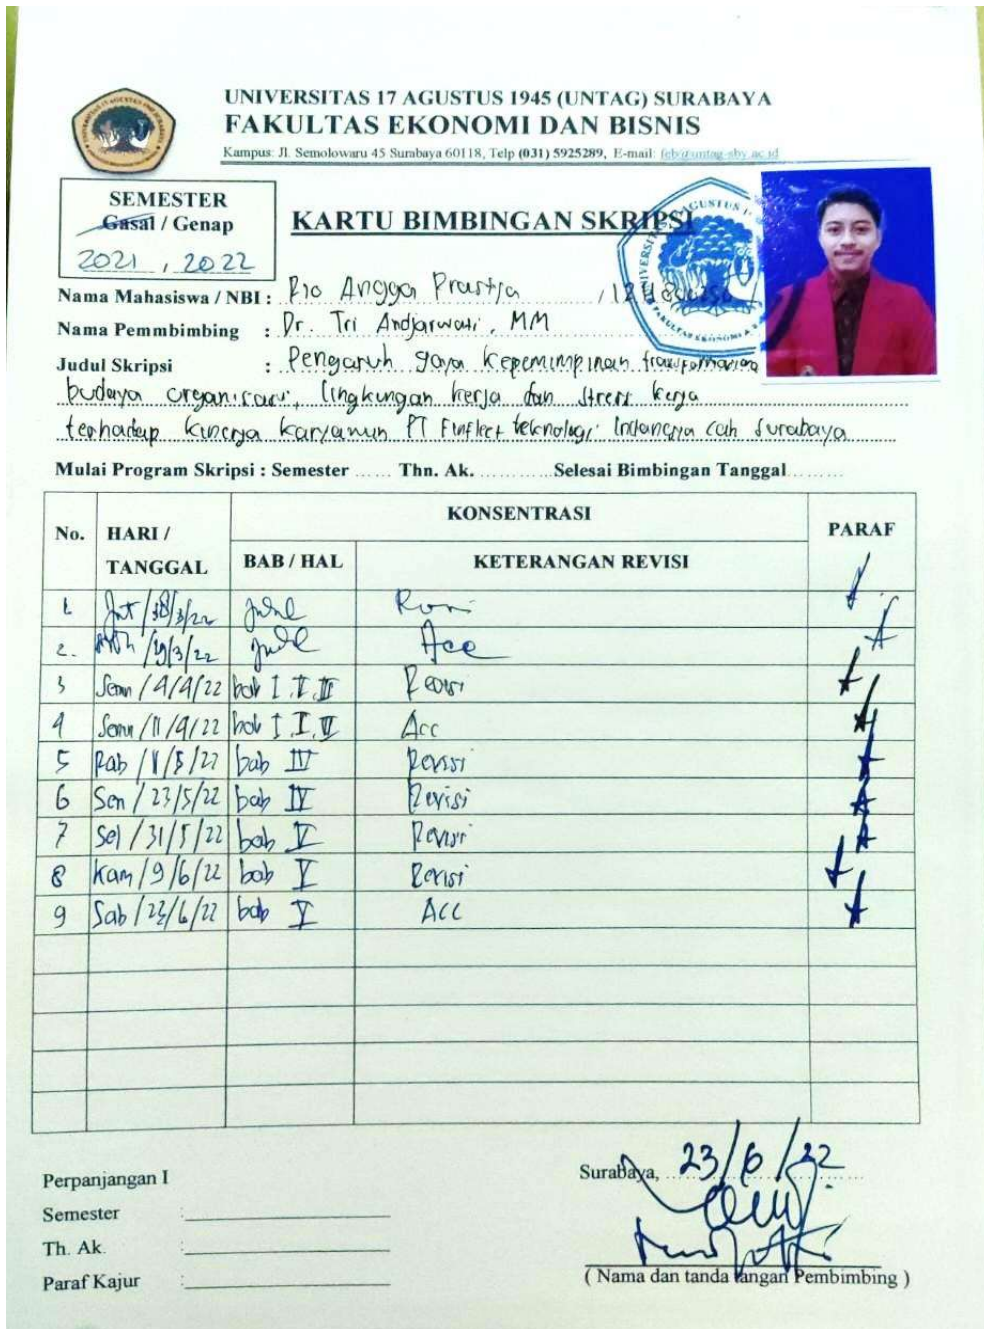 UNIVERSITAS 17 AGUSTUS 1945 (UNTAG) SURABAYA
FAKULTAS EKONOMI DAN BISNIS
Kampus: Jl. Semolowaru 45 Surabaya 60118, Telp (031) 5925289, E-mail: feb@untag-sby.ac.id
SEMESTER
Gasal / Genap
2021 , 2022
KARTU BIMBINGAN SKRIPSI
Nama Mahasiswa / NBI : Rio Angga Prastja /
Nama Pemmbimbing : Dr. Tri Andjarwati, MM
Judul Skripsi : Pengaruh gaya kepemimpinan
budaya organisasi, lingkungan kerja dan stress kerja
terhadap kinerja karyawan PT Finfleet teknologi Indonesia cab Surabaya
Mulai Program Skripsi : Semester ...... Thn. Ak. ............ Selesai Bimbingan Tanggal .........
No. HARI / TANGGAL KONSENTRASI PARAF
BAB / HAL KETERANGAN REVISI
1. /3/22
2. /3/22 Acc
3 Senin / 4/4/22 bab I, II, III Revisi
4 Senin / 11/4/22 bab I, II, III Acc
5 Rab / 11/5/22 bab IV Revisi
6 Sen / 23/5/22 bab IV Revisi
7 Sel / 31/5/22 bab V Revisi
8 Kam / 9/6/22 bab V Revisi
9 Sab / /6/22 bab V Acc
Perpanjangan I
Semester :
Th. Ak. :
Paraf Kajur :
Surabaya, 23/6/22
( Nama dan tanda tangan Pembimbing )